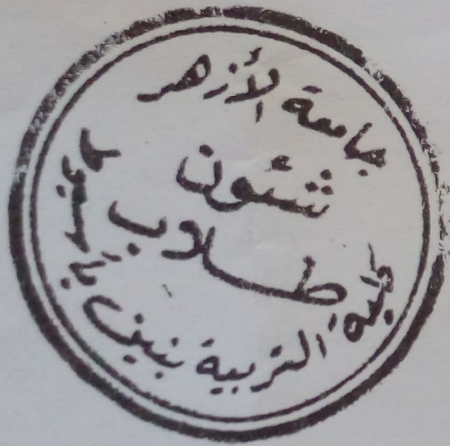 جامعة الأزهر
شئون
طلاب
كلية التربية بنين